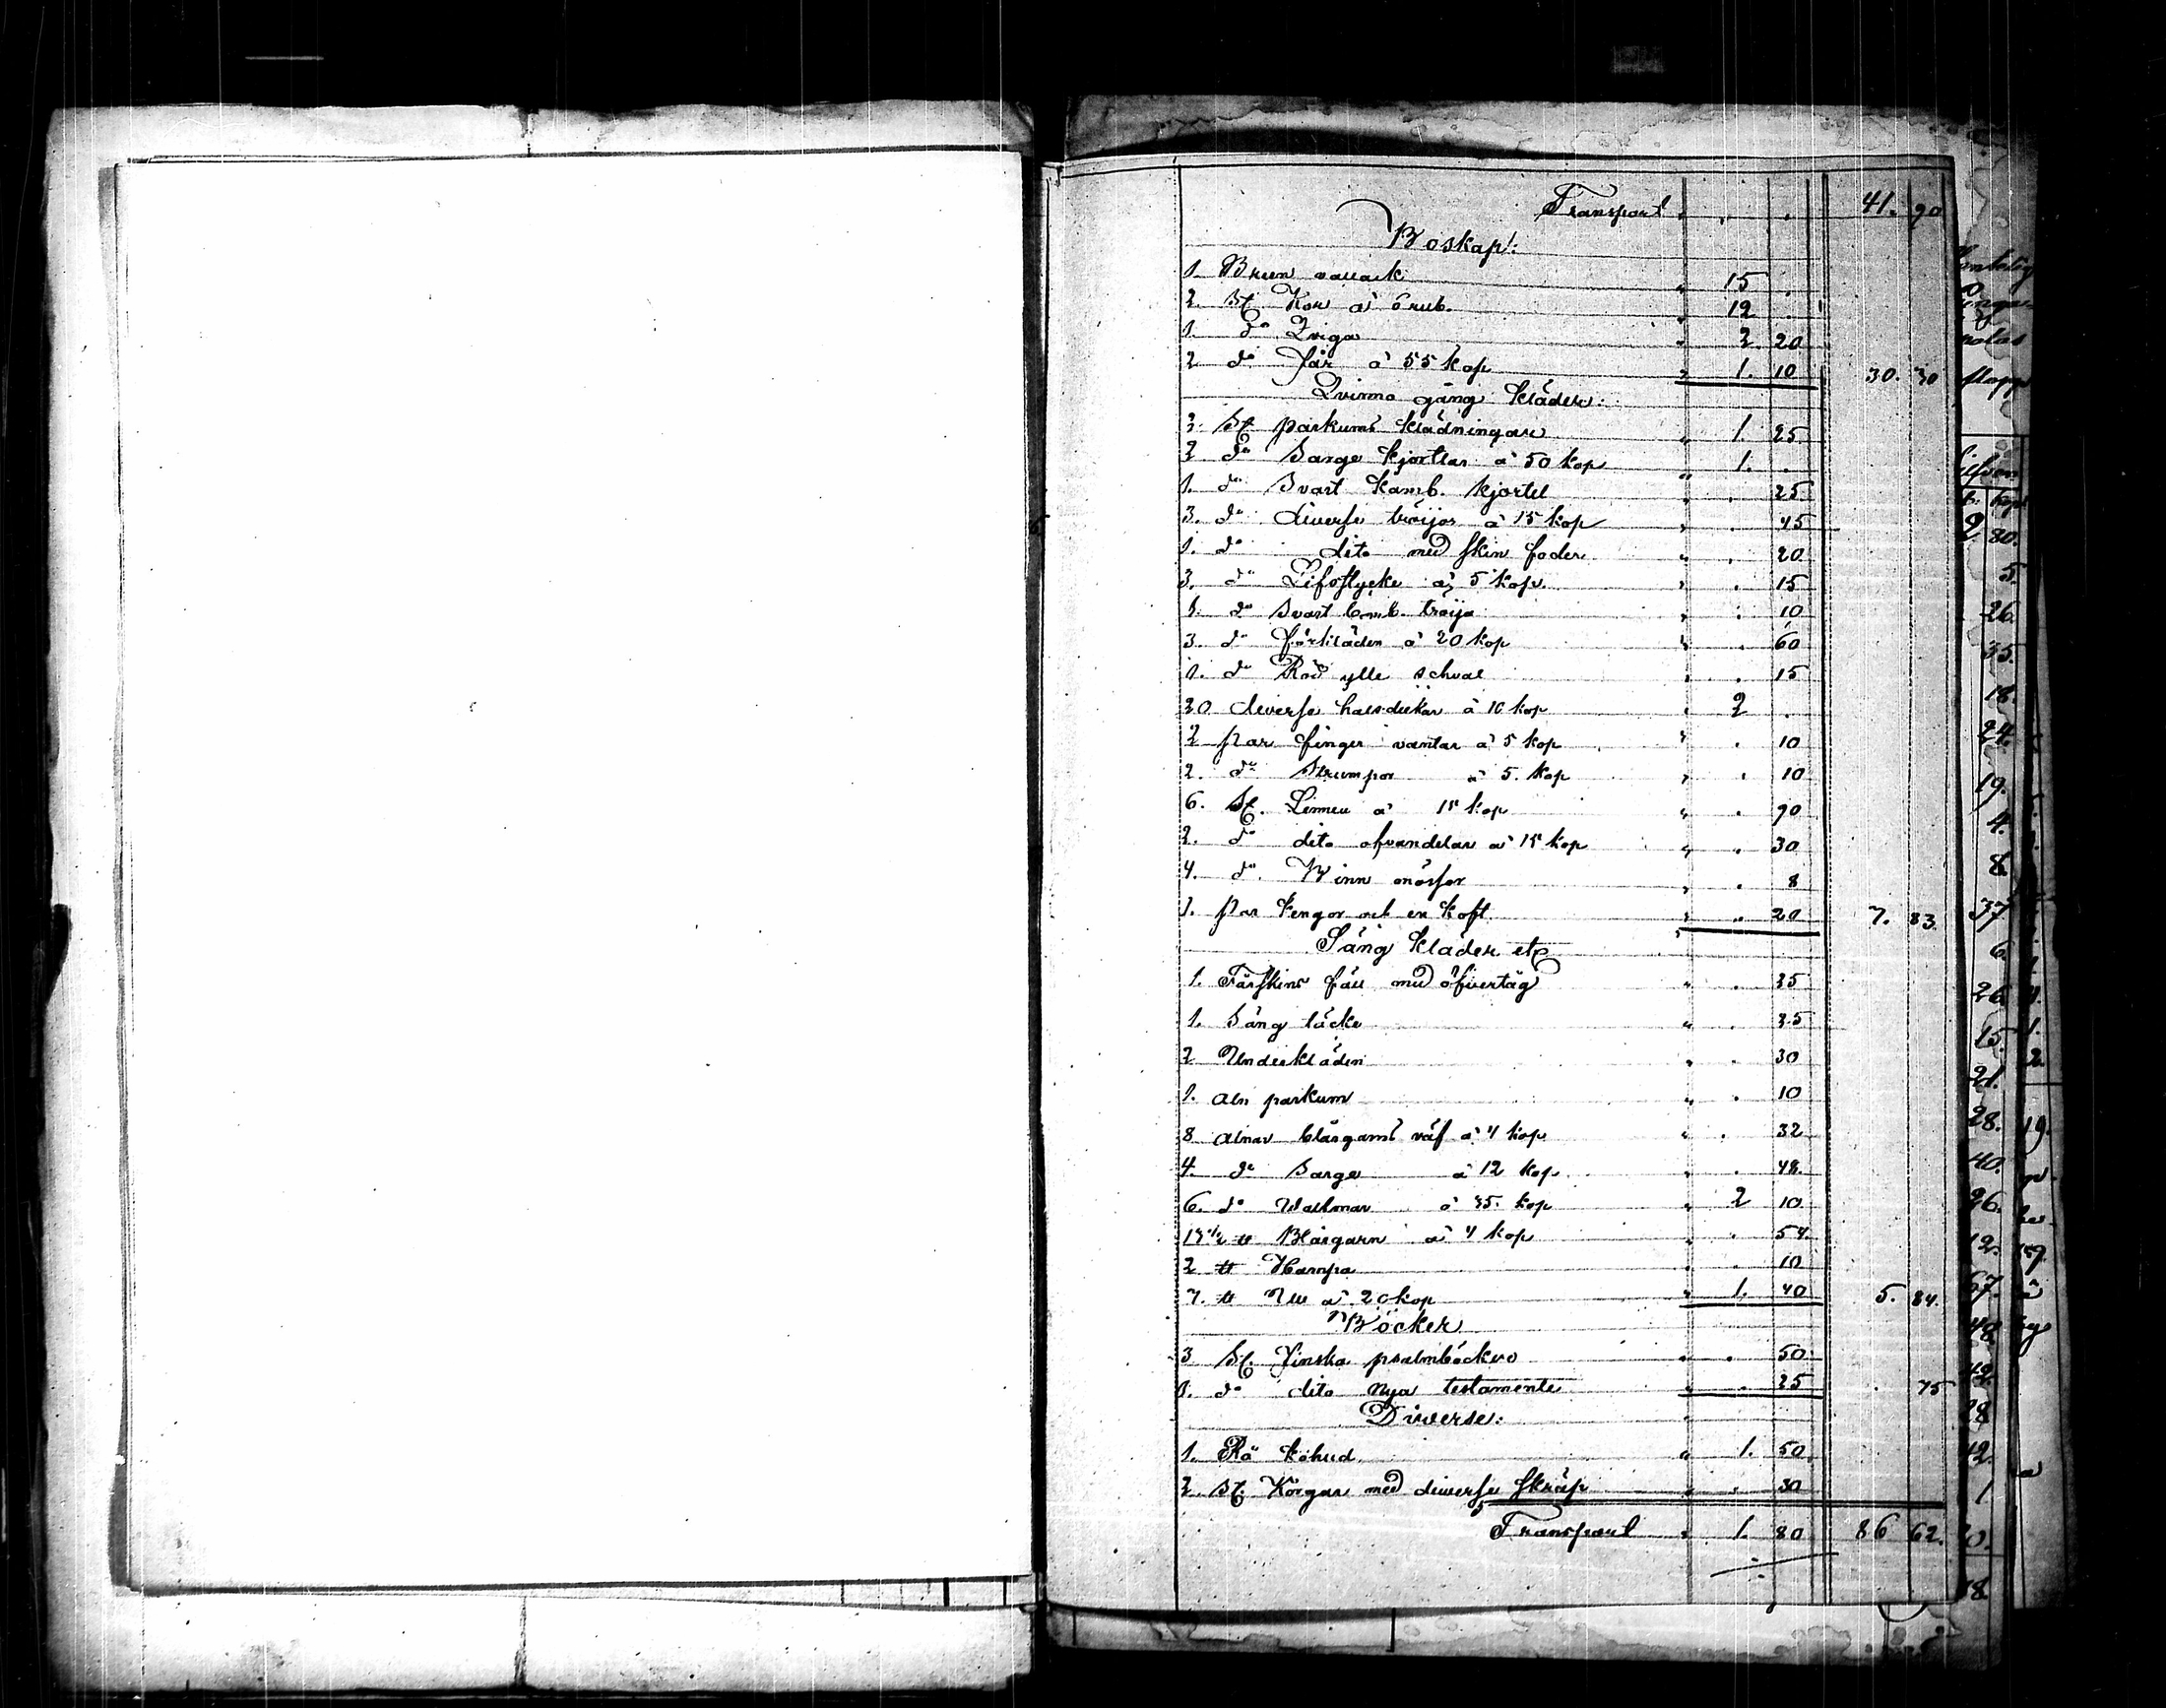 Transport " . . 41. 90
Boskap:
1. Brun vallack " 15 .
2. St Kor à 6 rub. " 12 .
1. do Qviga " 2 20
2 do Får à 55 kop " 1. 10 30. 30
Qvinno gång kläder:
3. St parkums klädningar " 1. 25
2 do Sarge kjortlar à 50 kop " 1. .
1. do Svart kamb. kjortel " . 25
3. do diverse tröijor à 15 kop " . 45
1. do dito med skin foder " . 20
3. do Lifstycke à 5 kop. " . 15
1. do Svart tröija " . 10
3. do förkläden à 20 kop " . 60
1. do Röd ylle schval " . 15
20 diverse halsdukar à 10 kop " 2 .
2 par finger vantar à 5 kop " . 10
2. do Strumpor à 5. kop " . 10
6. St. Linneu à 15 kop " . 90
2. do dito ofvandelar à 15 kop " . 30
4. do. Winn mössor " . 8
1. par kengor och en koft " . 20 7. 83
Säng kläder etc
1. Fårskins fäll med öfvertåg " . 35
1. Säng täcke " . 25
2 Underkläden " . 30
1. aln parkum " . 10
8 alnar blårgarns väf à 4 kop " . 32
4. do Sarge à 12 kop " . 48
6. do Wallmar à 35. kop " 2 10
13 1/2 ℔ Blårgarn à 4 kop " . 54
2 ℔ Hampa " . 10
7. ℔ Ull à 20 kop " 1. 40 5. 84.
Böcker
3 St. Finska psalmböcker " . 50
1. do dito Nya testamente " . 25 . 75
Diverse:
1. Rå kohud " 1. 50
2. St. Korgar med diverse skräp " . 30
Transport " 1. 80 86 62.